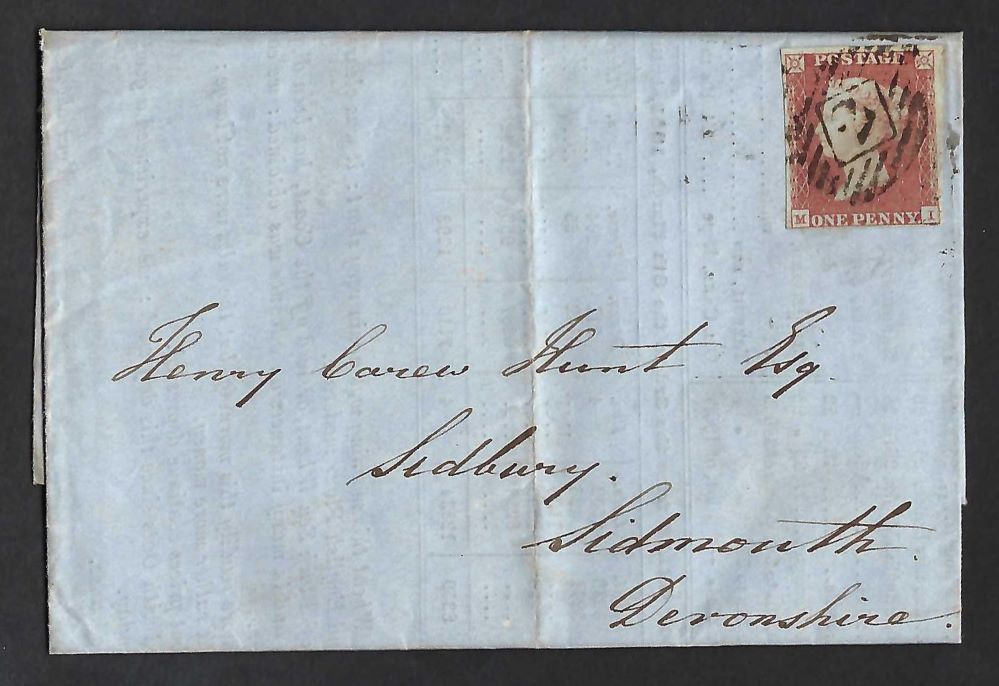 POSTAGE
M ONE PENNY I
Henry Carew Hunt Esq.
Sidbury.
Sidmouth.
Devonshire.